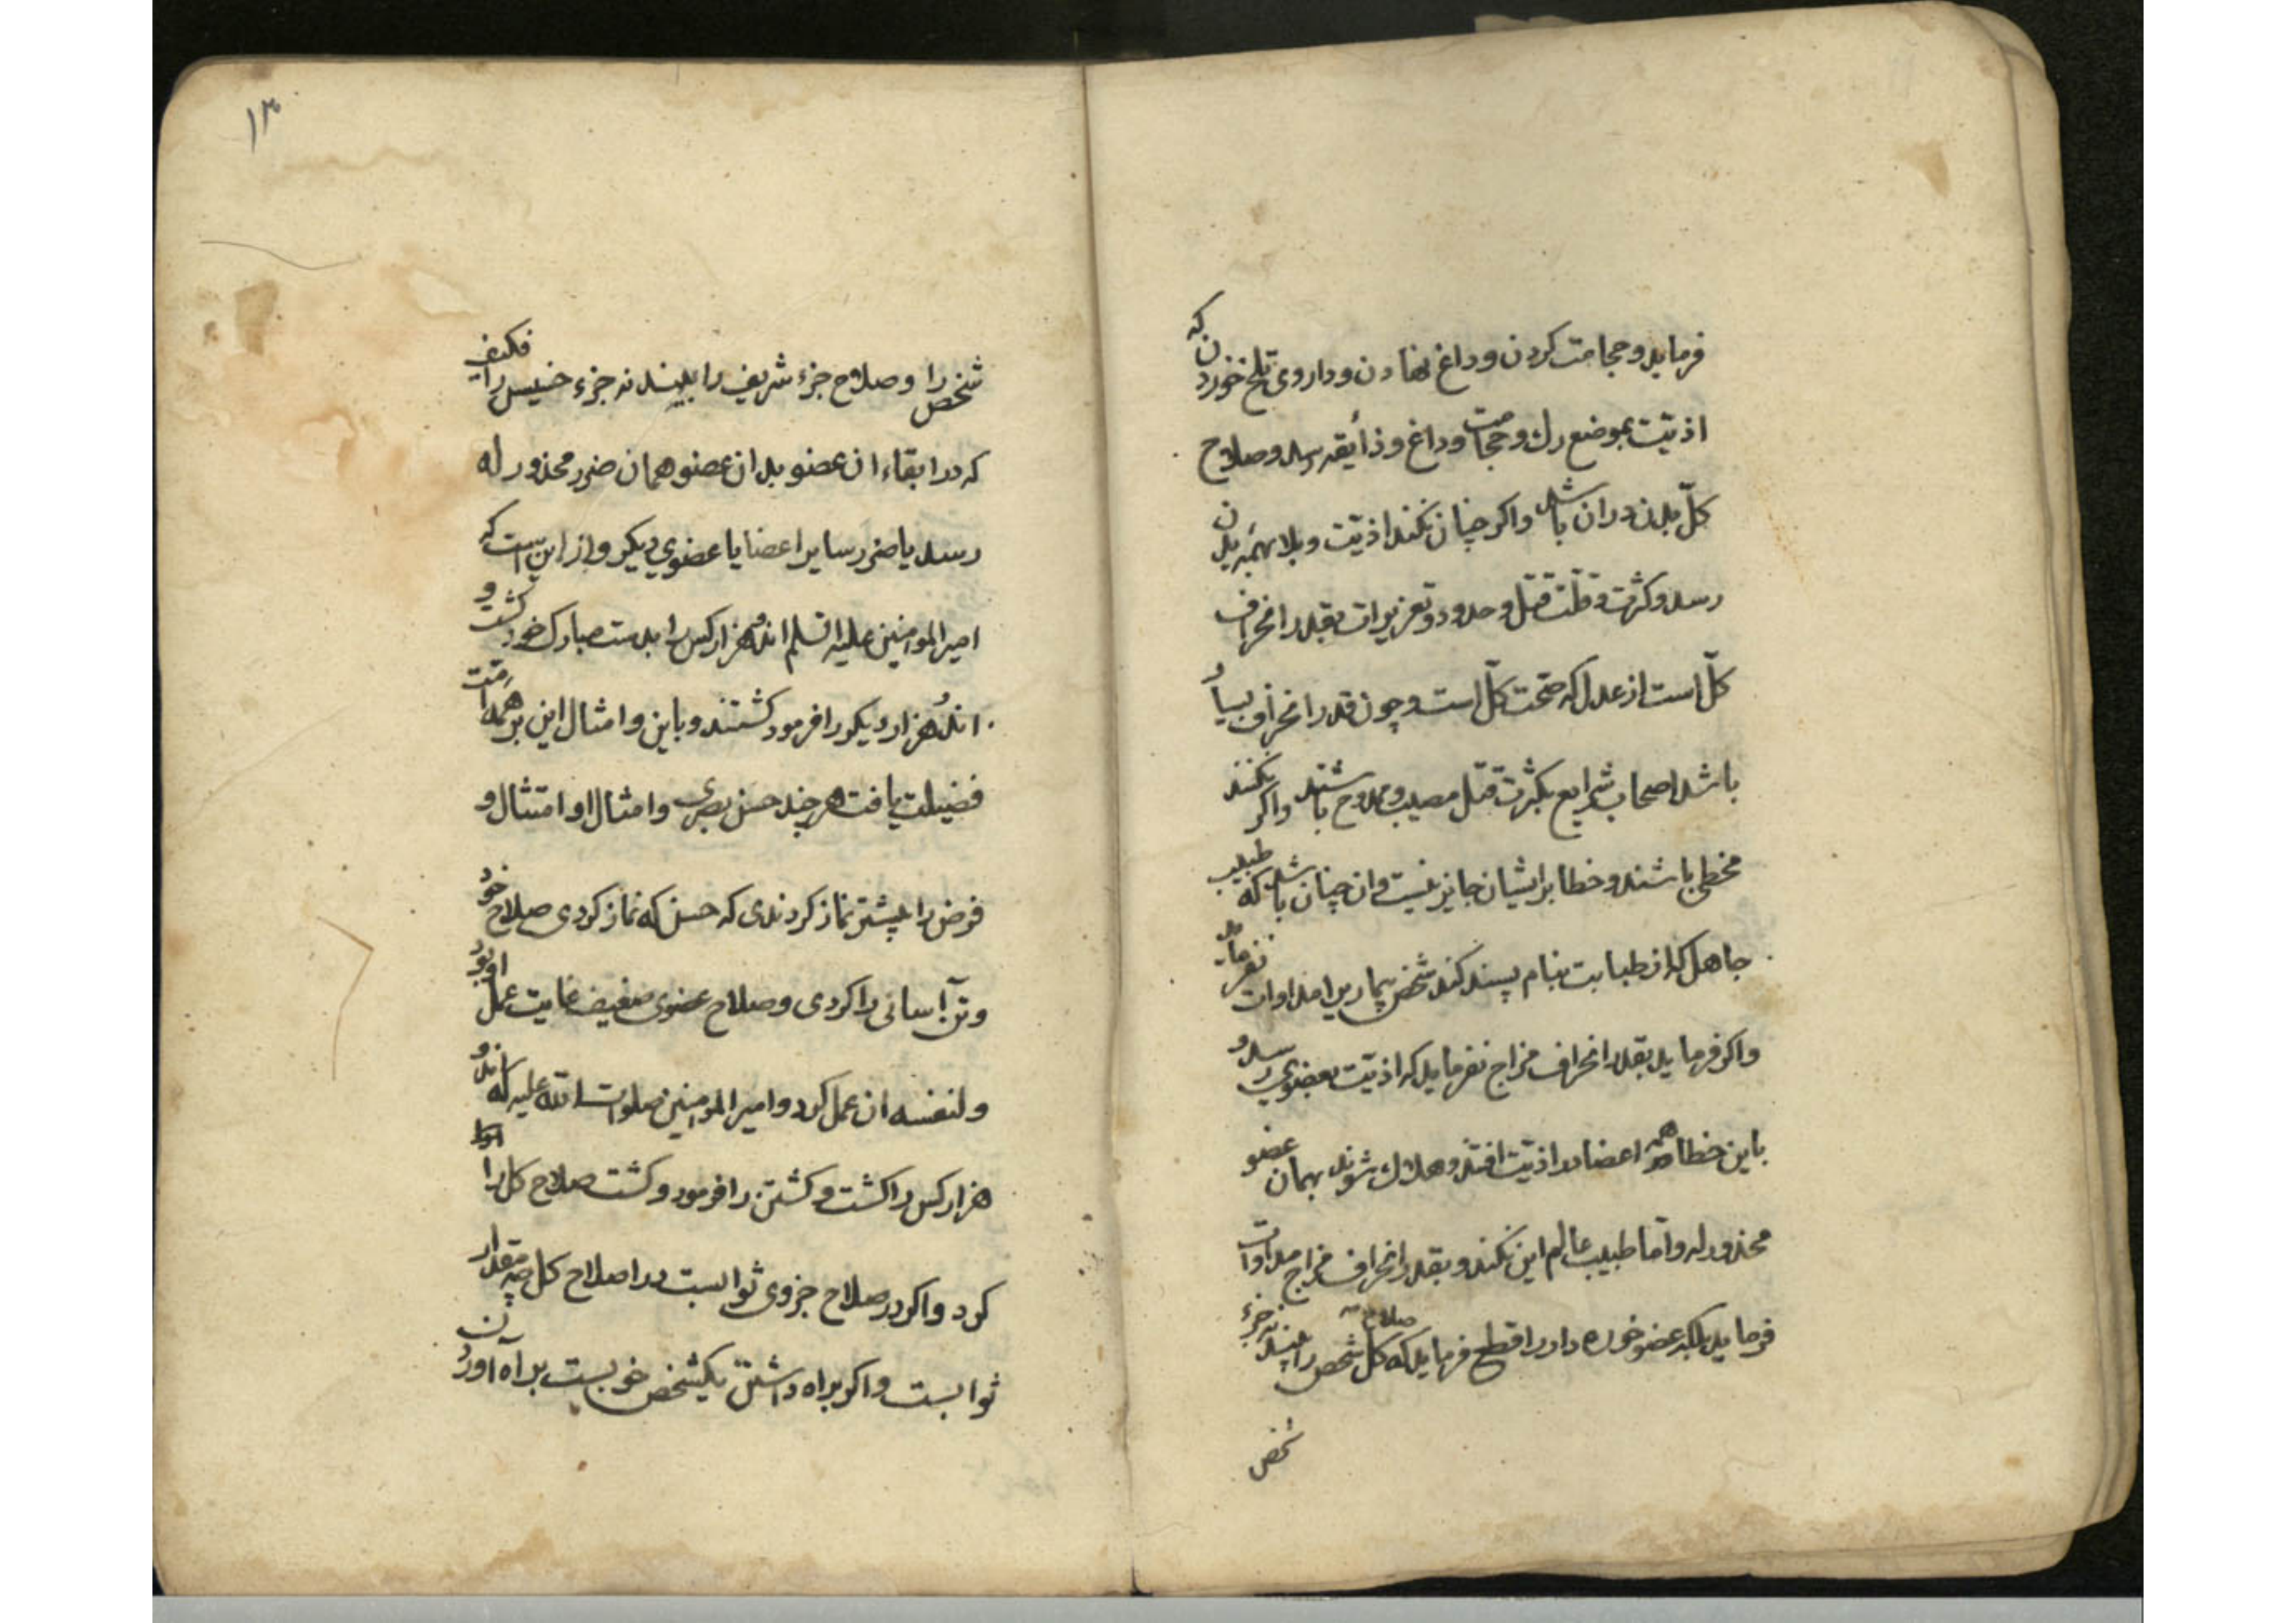 فرماید و حجامت کردن و داغ نهادن و داروی تلخ خوردن که
اذیت بموضع رك و حجامت و داغ و ذایقه رسد و صلاح
کلّ بدن در ان باشد و اکر چنان نکند اذیت و بلا بهمه بدن
رسد و کثرت و قلّت قتل و حدود و تعزیرات بقدر انحراف
کلّ است از عدل که صحّت کلّ است و چون قدر انحراف بسیار
باشد اصحاب شرایع بکثرت قتل مصیب و ممدوح باشند و اکر نکنند
مخطی باشند و خطا بر ایشان جایز نیست و ان چنان باشد که طبیب
جاهل که از طبابت بنام پسند کند شخص بیمار را مداوات نفرماید
و اکر فرماید بقدر انحراف مزاج نفرماید که اذیت بعضوی رسد و
باین خطا همه اعضا در اذیت افتند و هلاك شوند بهمان عضو
محذور له و امّا طبیب عالم این نکند و بقدر انحراف مزاج مداوات
فرماید بلکه عضو خوره دار را قطع فرماید که صلاح کل شخص را بیند نه جزء
شخص
١٣
شخص را و صلاح جزء شریف را بیند نه جزء خسیس را فکیف
که در ابقاء ان عضو بدان عضو همان ضرر محذور له
رسد یا ضرر سایر اعضا یا عضوی دیکر و از این است که
امیر المومنین علیه السلم اند هزار کس را بدست مبارك خود کشت و
اند هزار دیکر را فرمود کشتند و باین و امثال این بر همه امّت
فضیلت یافت هر چند حسن بصری و امثال او امتثال و
فرض را بیشتر نماز کردندی که حسن که نماز کردی صلاح خود
و تن آسانی را کردی و صلاح عضوی ضعیف غایت عمل او بود
و لنفسه ان عمل کرد و امیر المومنین صلوات الله علیه که اند و
هزار کس را کشت و کشتن را فرمود و کشت صلاح کل را
کرد و اکر در صلاح جزوی ثوابست در اصلاح کل چه مقدار
ثوابست و اکر براه داشتن یکشخص خوبست براه آوردن